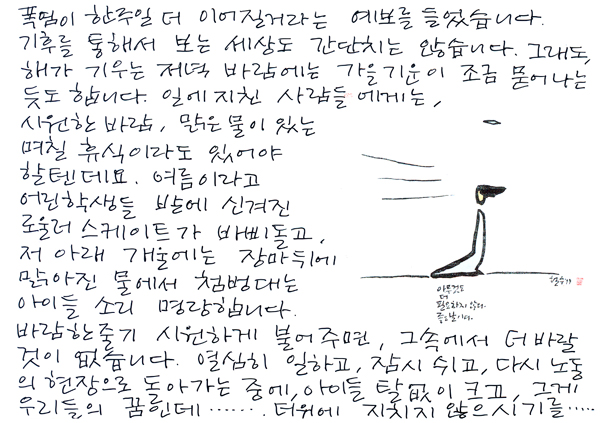 폭염이 한주일 더 이어질거라는 예보를 들었습니다.
기후를 통해서 보는 세상도 간단치는 않습니다. 그래도,
해가 기우는 저녁 바람에는 가을기운이 조금 묻어나는
듯도 합니다. 일에 지친 사람들에게는,
시원한 바람, 맑은 물이 있는
며칠 휴식이라도 있어야
할텐데요. 여름이라고
어린학생들 발에 신겨진
로울러 스케이트가 바삐돌고,
저 아래 개울에는 장마뒤에
맑아진 물에서 첨벙대는
아이들 소리 명랑합니다.
바람한줄기 시원하게 불어주면, 그속에서 더 바랄
것이 없습니다. 열심히 일하고, 잠시 쉬고, 다시 노동
의 현장으로 돌아가는 중에, 아이들 탈없이 크고, 그게
우리들의 꿈인데……. 더위에 지치지 않으시기를…..
아무것도
더
필요하지 않다.
좋은날이다.